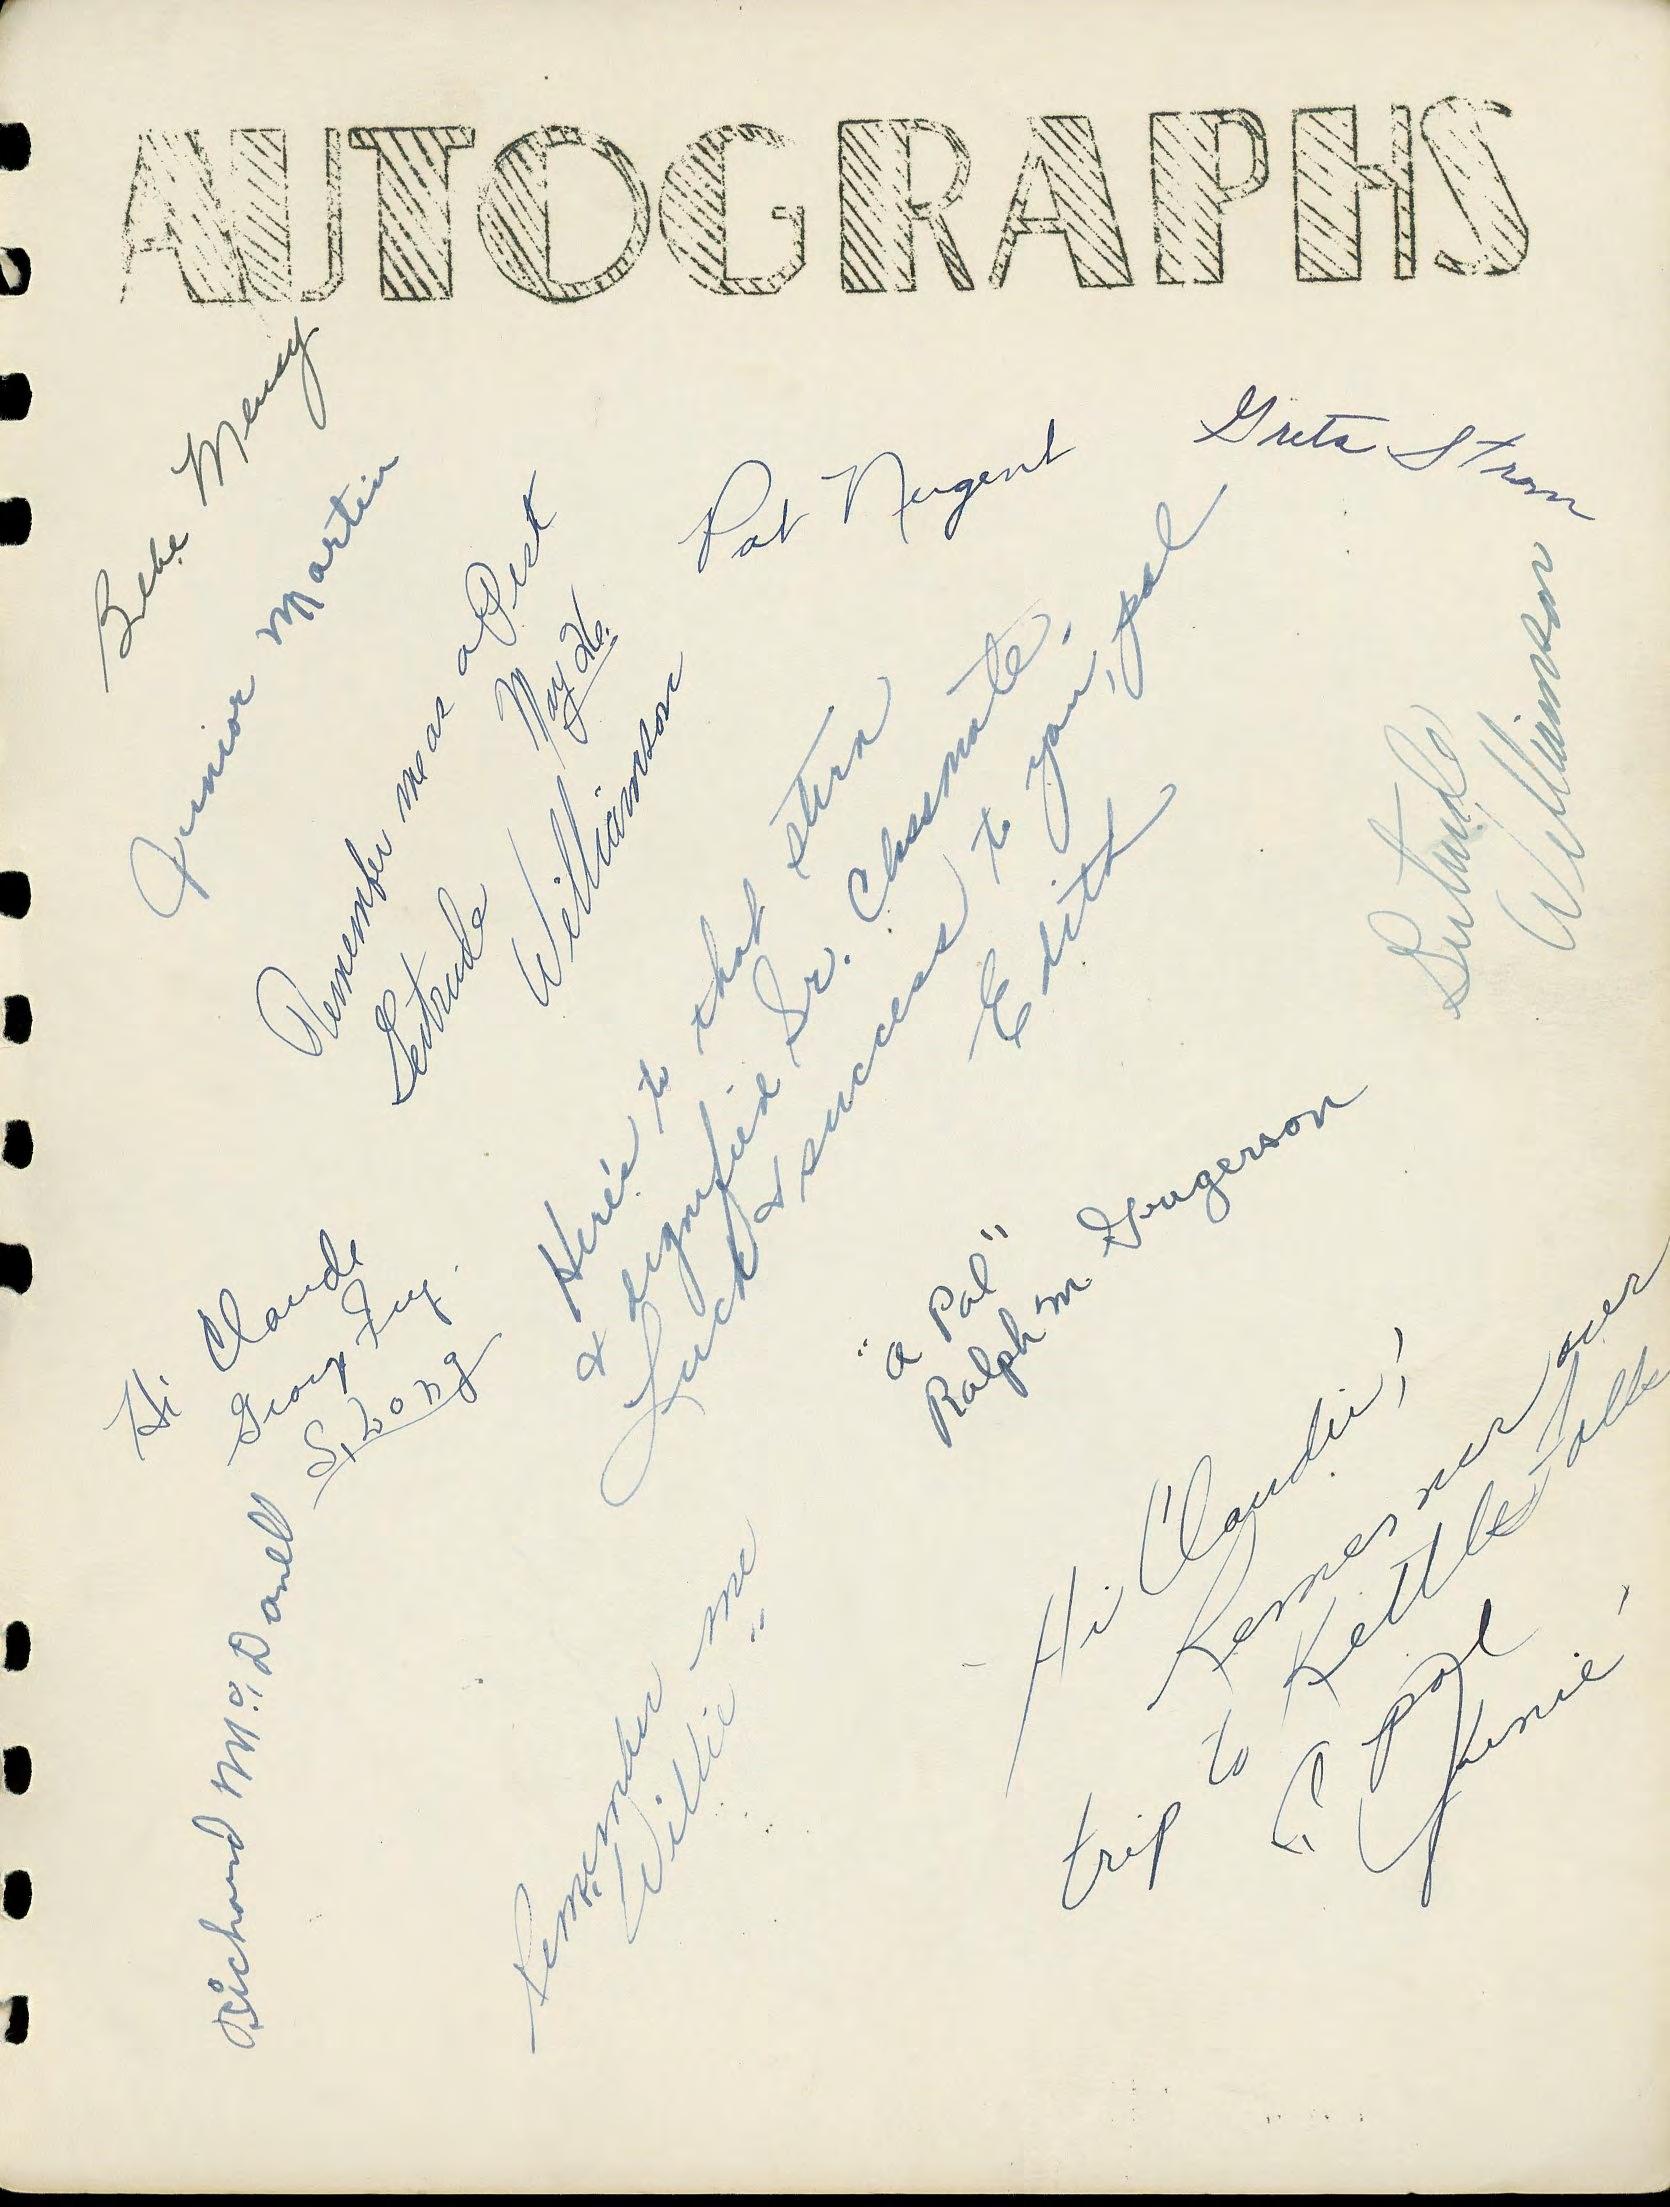 AUTOGRAPHS
Bebe
Junior Martin
Remember me as a Pest
May 26.
Gertrude
Williamson
Pat Nugent
Greta Strom
Gertrude
Williamson
Here's to that stern
& dignified Sr. Classmate.
Luck & success to you, pal
Edith
"a Pal"
Ralph m Gougerson
Hi Claude
George
Richard McDonell
Remember me
Willie"
Hi Claudie,
Remember our
trip to Kettle Falls
"a pal